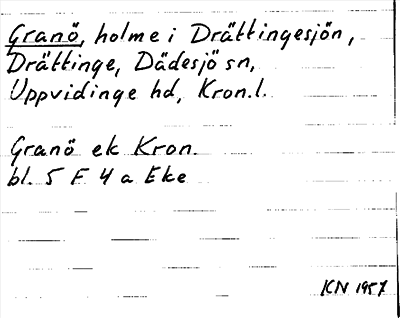 Granö, holme i Drättingesjön,
Drättinge, Dädesjö sn,
Uppvidinge hd, Kron.l.
Granö ek Kron.
bl. 5 F 4 a Eke
KN 1957